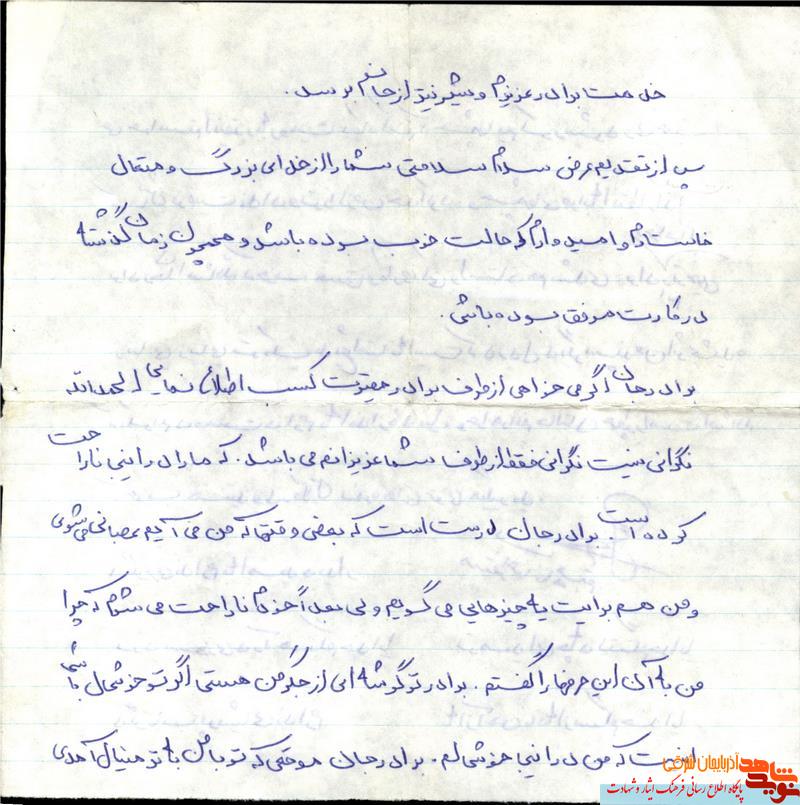 خدمت برادر عزیزم و شیرین‌تر از جانم برسد.
پس از تقدیم عرض سلام سلامتی شما را از خدای بزرگ و متعال
خاستارم و امیدوارم که حالت خوب بوده باشد و همچون زمان گذشته
در کارت موفق بوده باشی.
برادر جان اگر می خواهی از طرف برادر حقیرت کسب اطلاع نمایی الحمدالله
نگرانی نیست نگرانی فقط از طرف شما عزیزانم می باشد. که ما را در اینجا ناراحت
کرده است. برادر جان درست است که بعضی وقتها که من می آیم عصبانی می شوی
و من هم برایت یه چیزهایی می گویم ولی بعداً خودم ناراحت می شوم که چرا
من به آن این حرفها را گفتم. برادر تو گوشه ای از جگر من هستی اگر تو خوشحال باشی
اینست که من در اینجا خوشحالم. برادر جان موقعی که تو با من به ترمینال آمدی
نوید شاهد آذربایجان شرقی
پایگاه اطلاع رسانی فرهنگ ایثار و شهادت